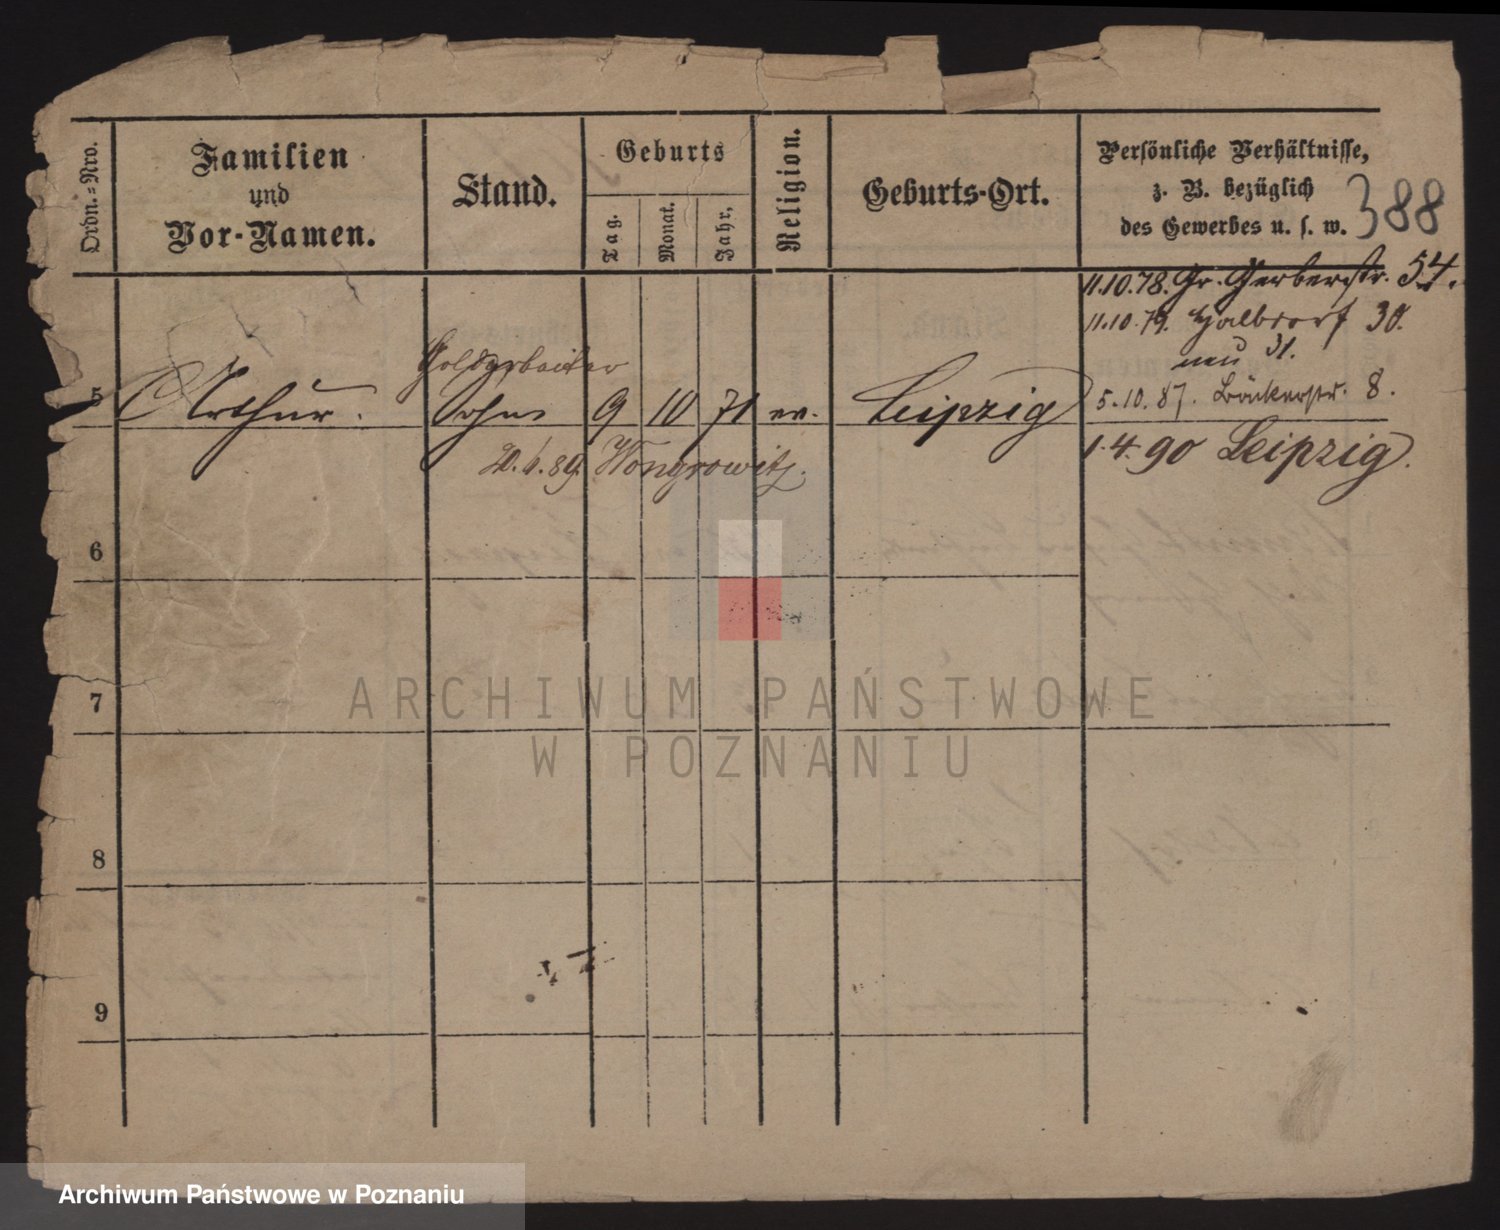 Ordn.=Nro.
Familien
und
Vor-Namen.
Stand.
Geburts
Tag.
Monat.
Jahr,
Religion.
Geburts-Ort.
Persönliche Verhältnisse,
z. B. bezüglich
des Gewerbes u. s. w.
388
11.10.78. Gr. Gerberstr. 54.
11.10.79. Halbdorf 30.
neu 31.
Goldarbeiter
5 Arthur. Sohn 9 10 71 ev. Leipzig 5.10.87. Bäckerstr. 8.
20.6.89. Wongrowitz. 1.4.90 Leipzig.
6
7
8
9
ARCHIWUM PAŃSTWOWE
W POZNANIU
Archiwum Państwowe w Poznaniu